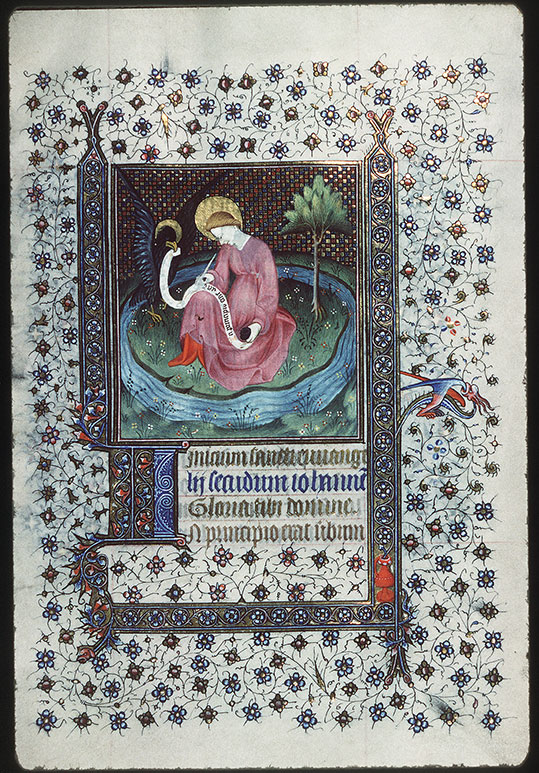 in principio erat
Inicium sancti euuange
lij secūdum iohanne
Gloria tibi domine
In principio erat uerbum